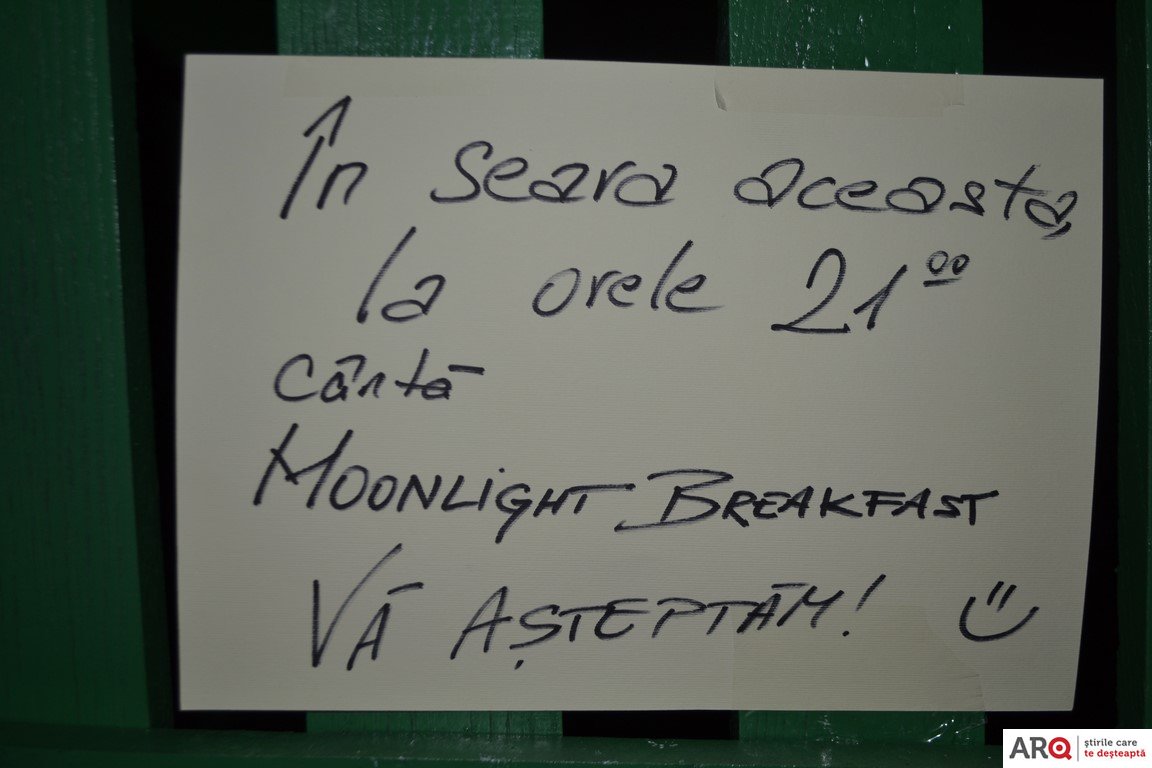 În seara aceasta,
la orele 21⁰⁰
cântă
MOONLiGHT BREAKFAST
VĂ AȘTEPTĂM! ت
ARQ știrile care
te deșteaptă